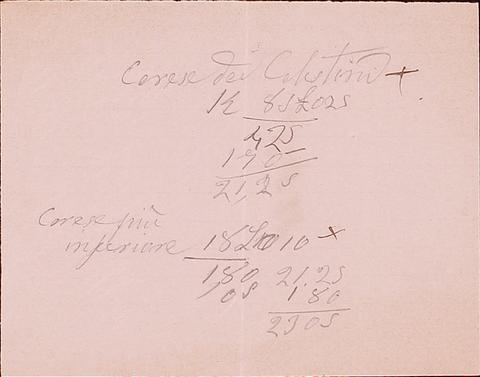 Carese dei Celestini +
K 85 L 025
4,25
170
21,25
Carese più
inferiore 18 L 010 x
180 21.25
05 180
2305